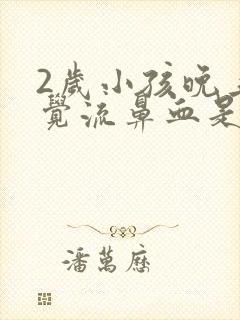 2歲小孩晚
覺流鼻血是
潘萬曆